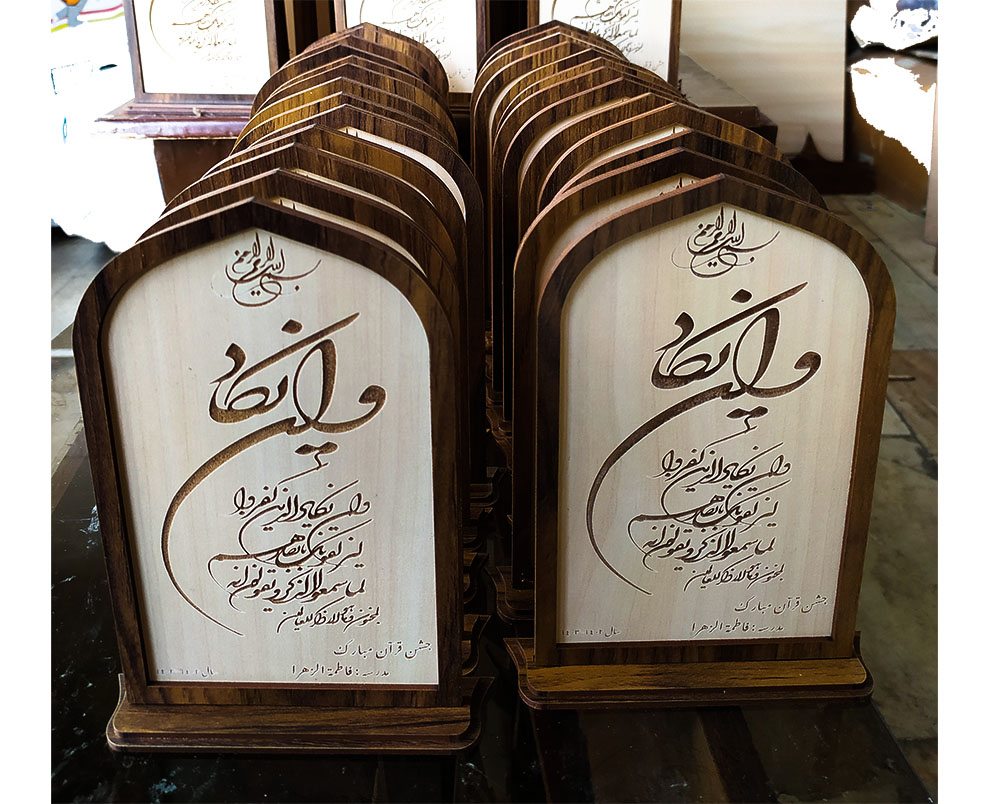 بسم الله الرحمن الرحیم
وان یکاد
وان یکاد الذین کفروا
لیزلقونک بابصارهم
لما سمعوا الذکر و یقولون انه
لمجنون و ما هو الا ذکر للعالمین
جشن قرآن مبارک
مدرسه : فاطمة الزهرا
سال
بسم الله الرحمن الرحیم
وان یکاد
وان یکاد الذین کفروا
لیزلقونک بابصارهم
لما سمعوا الذکر و یقولون انه
لمجنون و ما هو الا ذکر للعالمین
جشن قرآن مبارک
مدرسه : فاطمة الزهرا
سال ١٤٠٢-١٤٠٣